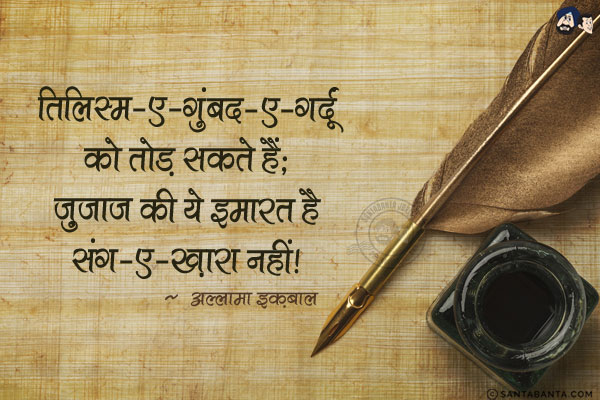 तिलिस्म-ए-गुंबद-ए-गर्दूं
को तोड़ सकते हैं;
जुजाज की ये इमारत है
संग-ए-ख़ारा नहीं!
~ अल्लामा इक़बाल
© SANTABANTA.COM